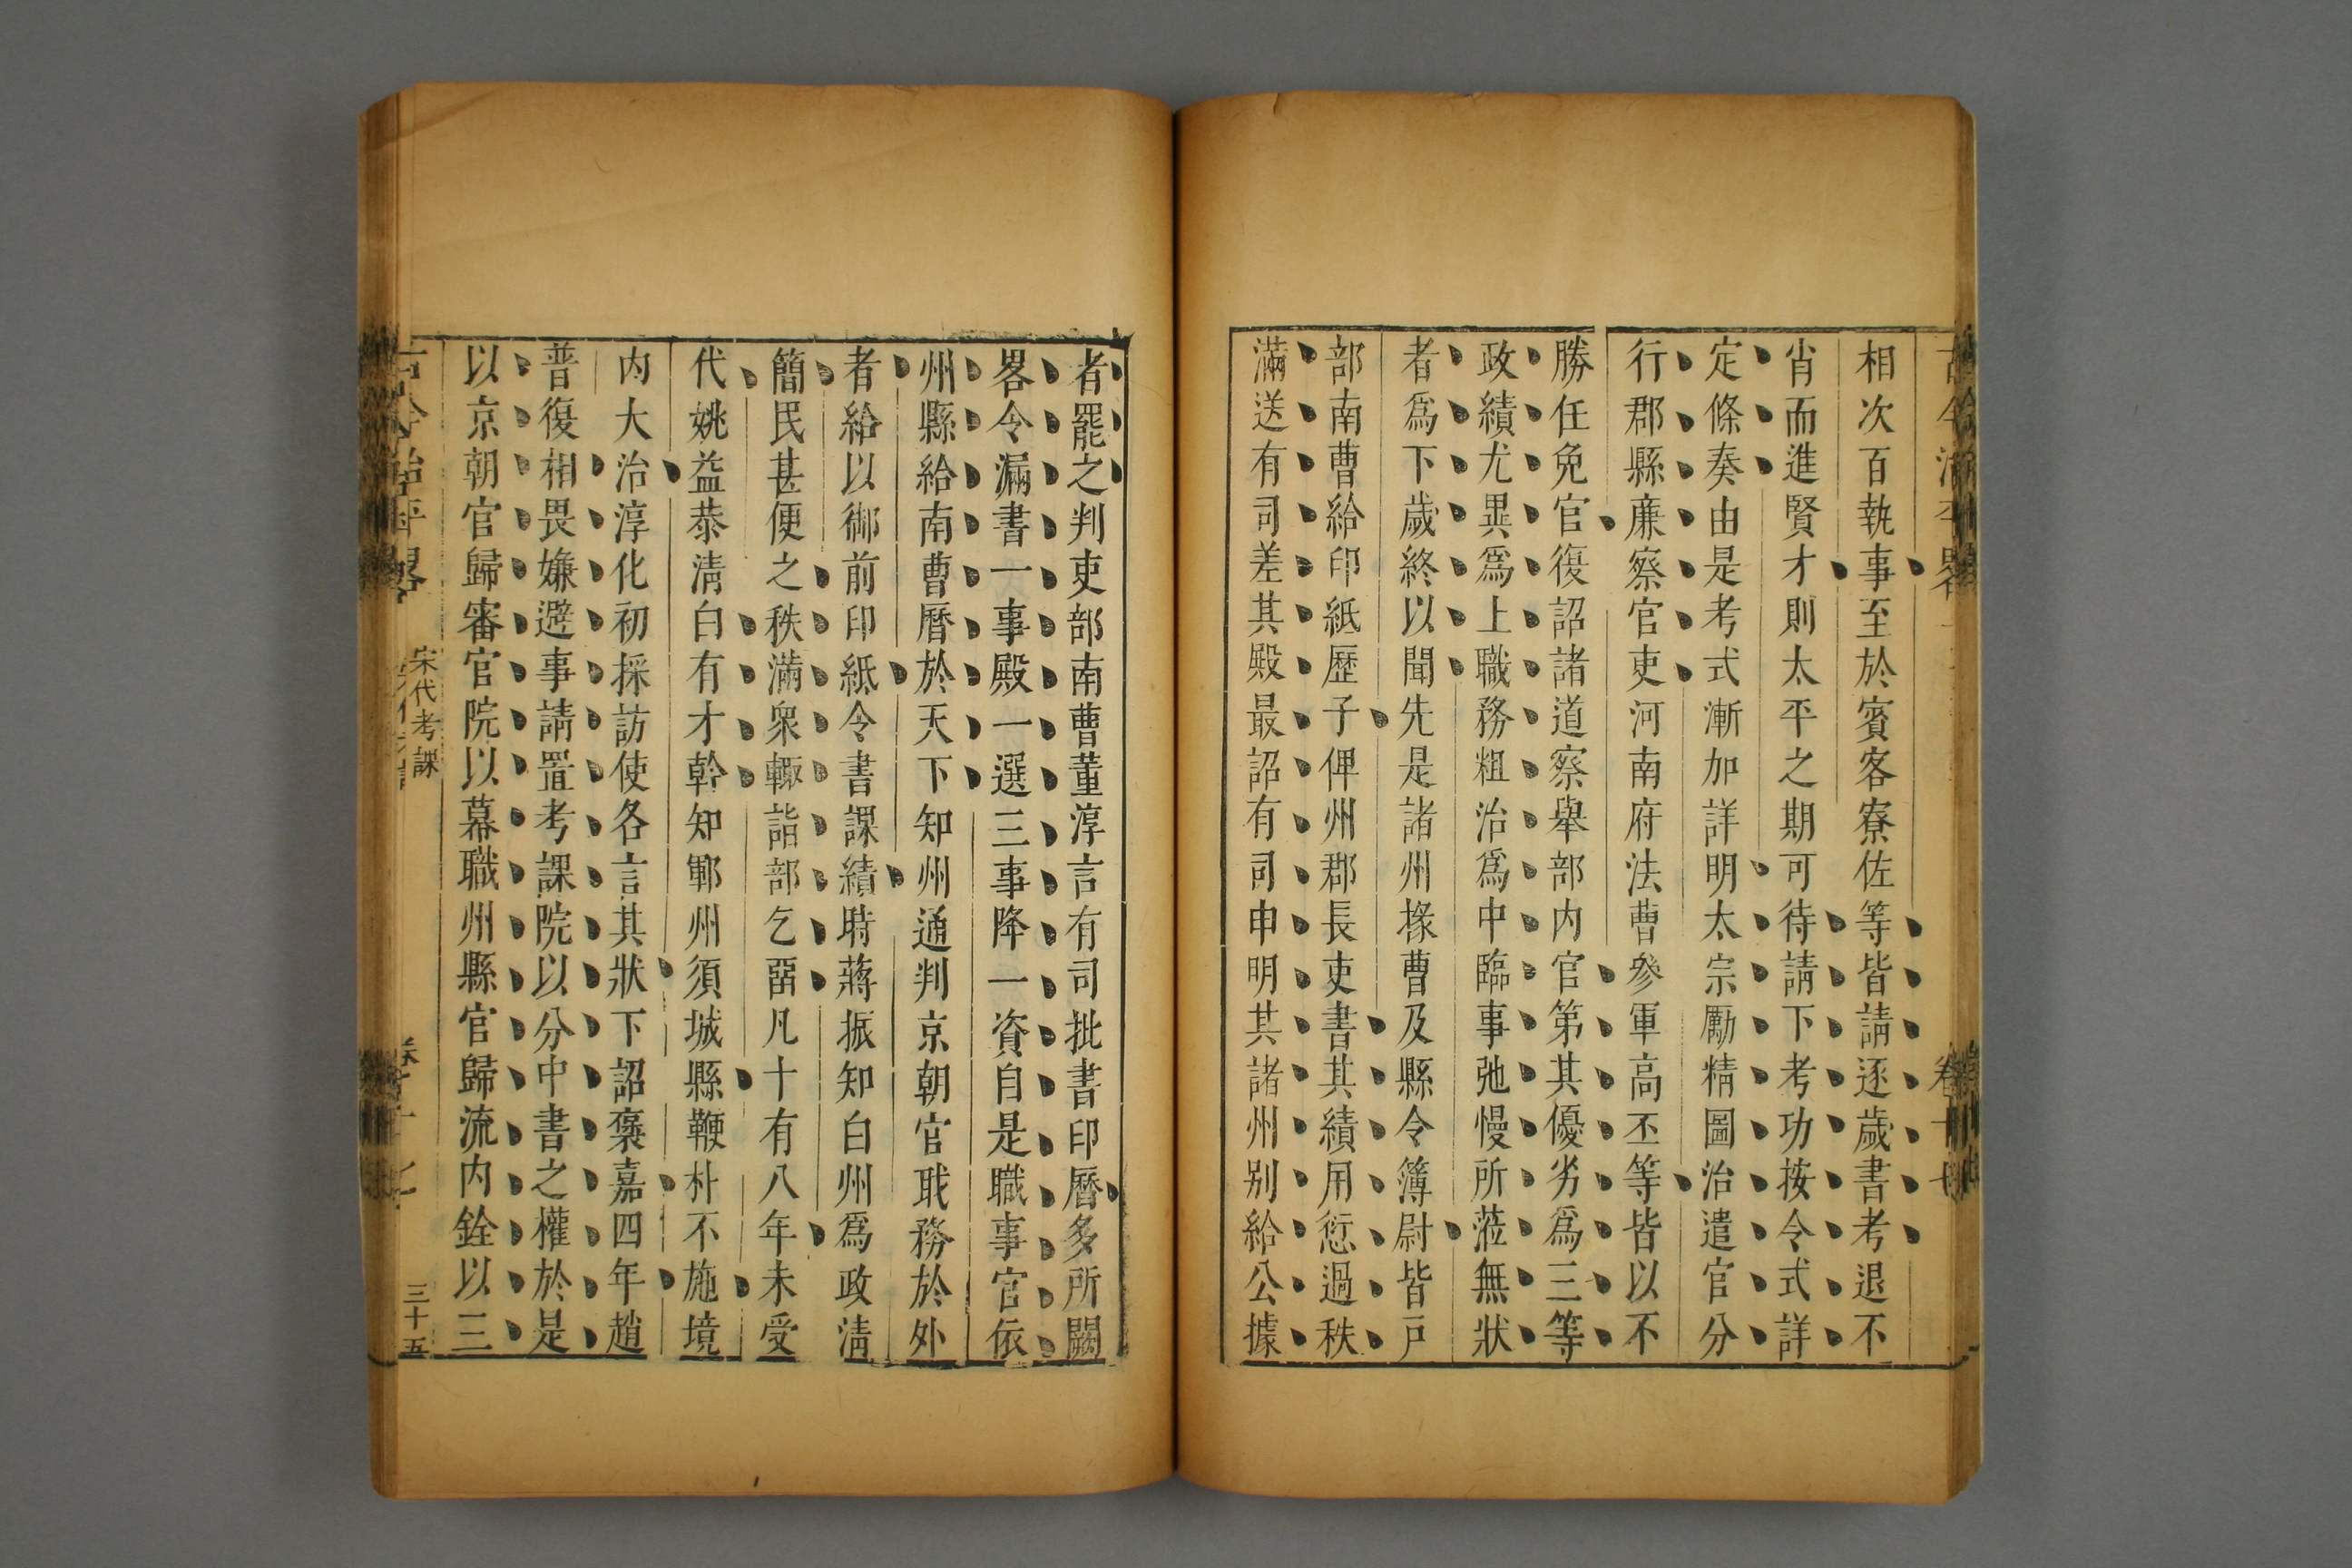 相次百執事至於賓客寮佐等皆請逐歲書考退不
肖而進賢才則太平之期可待請下考功按令式詳
定條奏由是考式漸加詳明太宗勵精圖治遣官分
行郡縣廉察官吏河南府法曹參軍高丕等皆以不
勝任免官復詔諸道察舉部内官第其優劣爲三等
政績尤異爲上職務粗治爲中臨事弛慢所蒞無狀
者爲下歲終以聞先是諸州掾曹及縣令簿尉皆戸
部南曹給印紙歷子俾州郡長吏書其績用愆過秩
滿送有司差其殿最詔有司申明其諸州别給公據
者罷之判吏部南曹董淳言有司批書印曆多所闕
畧令漏書一事殿一選三事降一資自是職事官依
州縣給南曹曆於天下知州通判京朝官戢務於外
者給以御前印紙令書課績時蔣振知白州爲政淸
簡民甚便之秩滿衆輙詣部乞畱凡十有八年未受
代姚益恭淸白有才幹知鄆州須城縣鞭朴不施境
内大治淳化初採訪使各言其狀下詔襃嘉四年趙
普復相畏嫌避事請置考課院以分中書之權於是
以京朝官歸審官院以幕職州縣官歸流内銓以三
古今治平畧
宋代考課
三十五